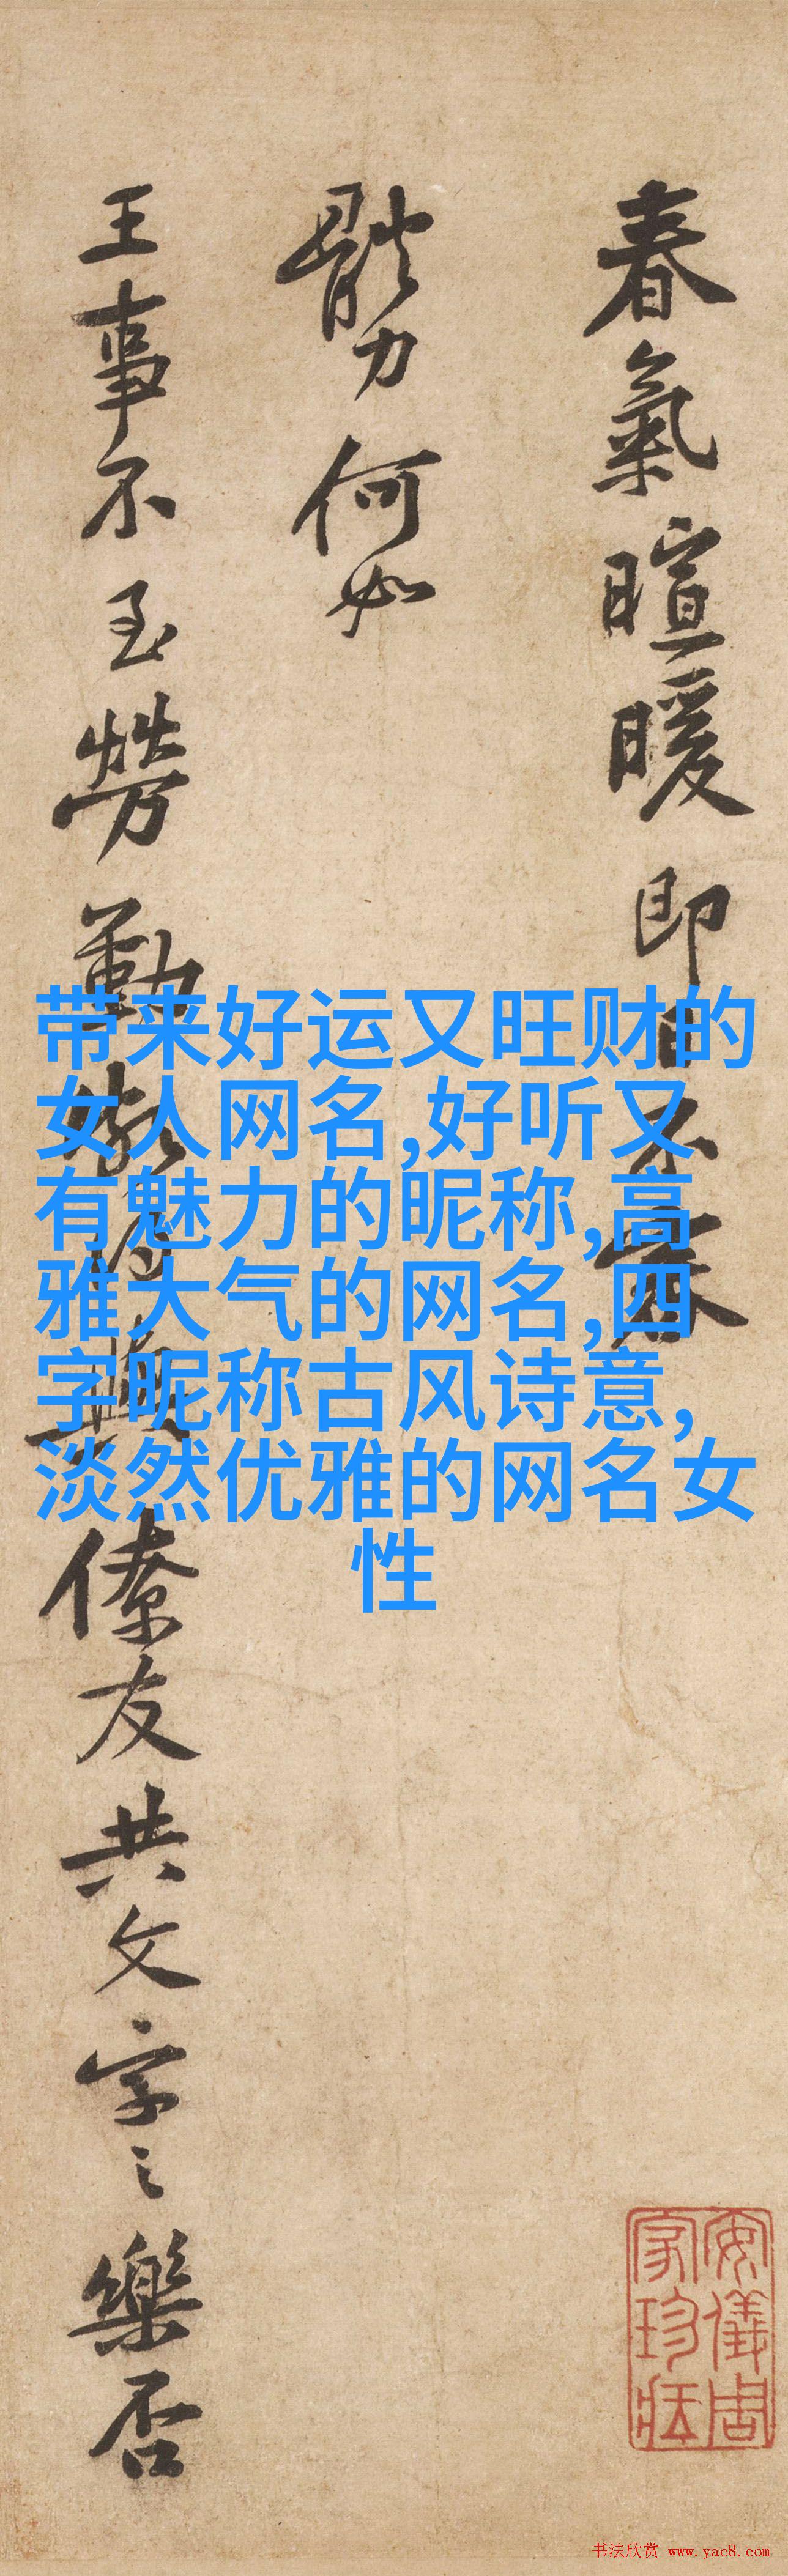 春氣暄暖即日不審
體力何如
王事不至勞勤
僚友共文字之樂否
带来好运又旺财的
女人网名,好听又
有魅力的昵称,高
雅大气的网名,四
字昵称古风诗意,
淡然优雅的网名女
性
安儀周
家珍藏
书法欣赏 www.yac8.com